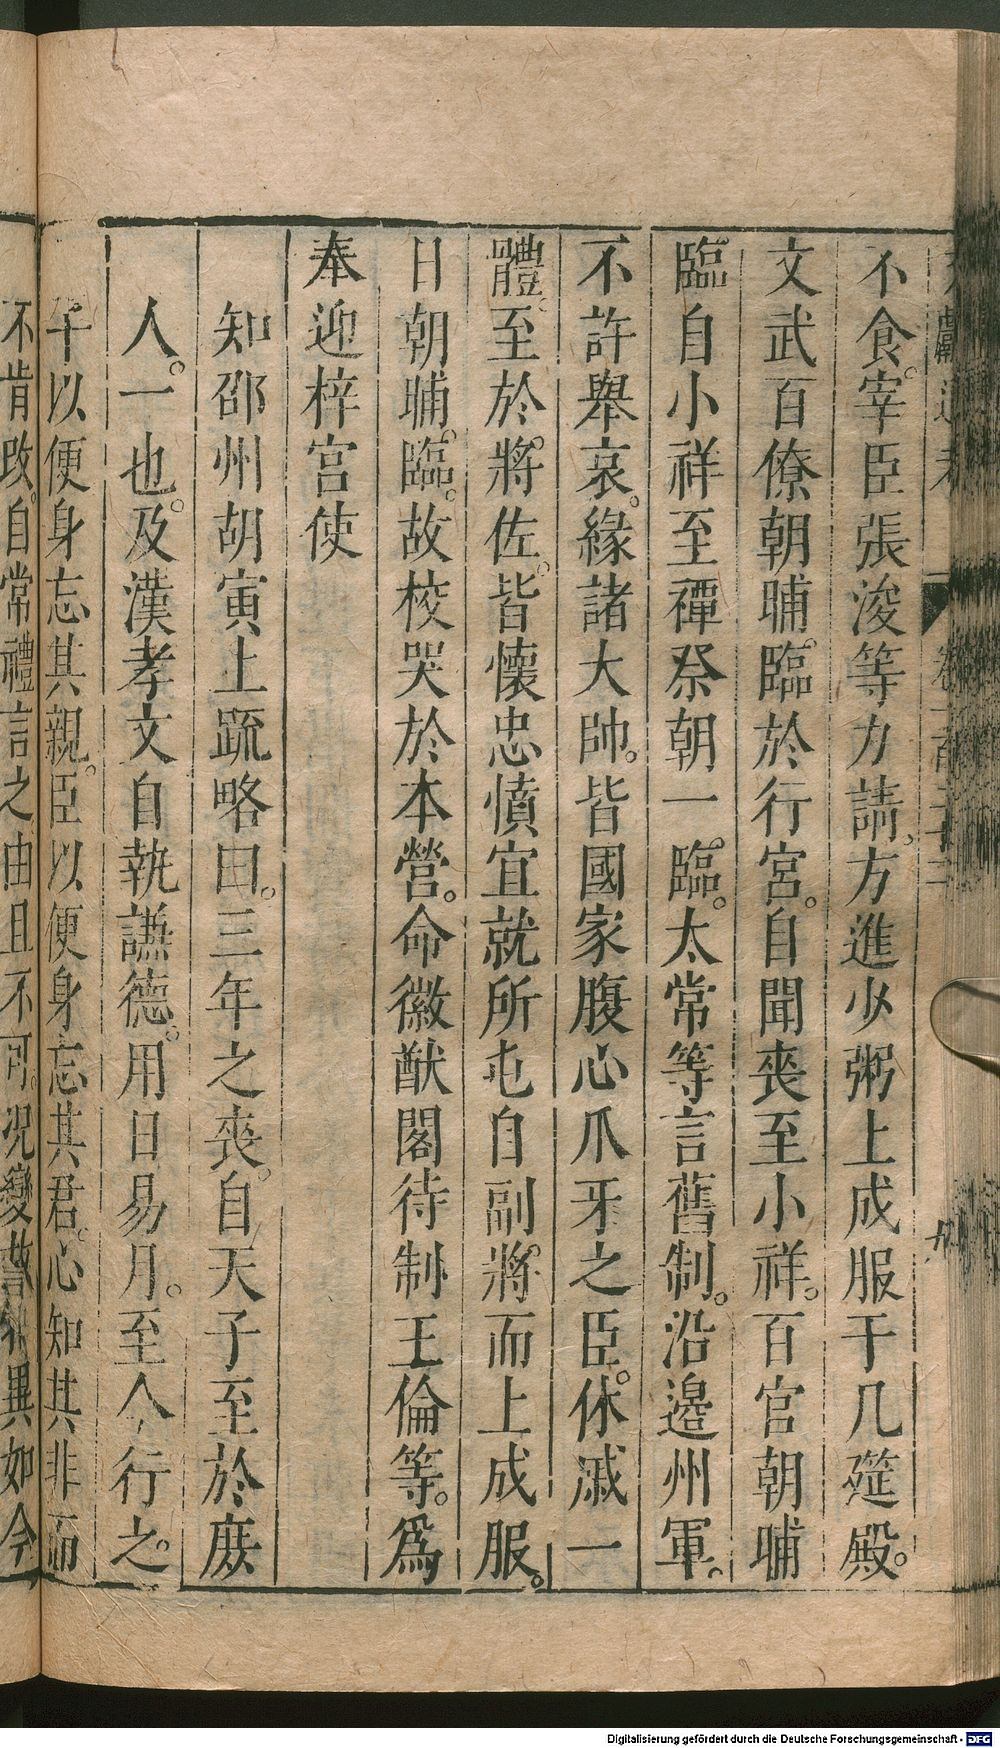 不食。宰臣張浚等力請。方進少粥上成服于几筵殿。
文武百僚朝晡臨於行宮。自聞喪至小祥。百官朝晡
臨自小祥至禫祭朝一臨。太常等言舊制。沿邊州軍。
不許舉哀。緣諸大帥。皆國家腹心爪牙之臣。休戚一
體。至於將佐。皆懷忠憤宜就所屯自副將而上成服。
日朝晡臨。故校哭於本營。命徽猷閣待制王倫等。為
奉迎梓宮使
知邵州胡寅上疏略曰。三年之喪。自天子至於庶
人。一也。及漢孝文自執謙德。用日易月。至今行之。
子以便身忘其親。臣以便身忘其君。心知其非而
不肯改。自常禮言之由且不可。況變故特異如今
Digitalisierung gefördert durch die Deutsche Forschungsgemeinschaft - DFG